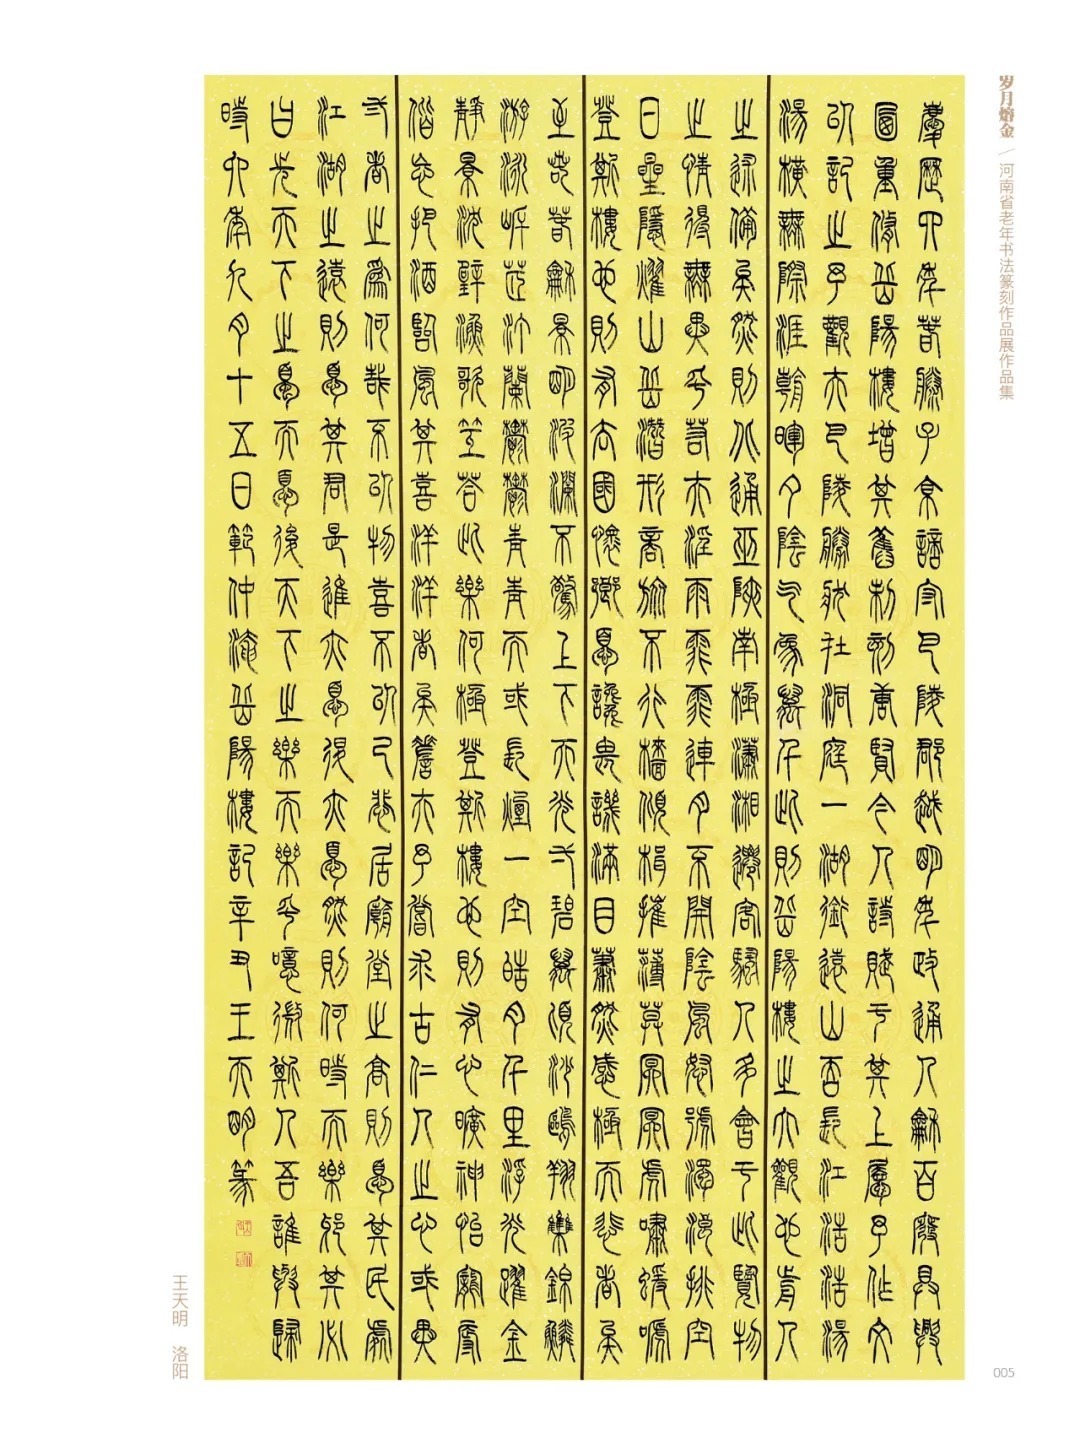 岁月熔金／河南省老年书法篆刻作品展作品集
慶歷四年春滕子京謫守巴陵郡越明年政通人龢百廢具興
乃重修岳陽樓增其舊制刻唐賢今人詩賦于其上屬予作文
以記之予觀夫巴陵勝狀在洞庭一湖銜遠山吞長江浩浩湯
湯橫無際涯朝暉夕陰气象萬千此則岳陽樓之大觀也前人
之述備矣然則北通巫峽南極瀟湘遷客騷人多會于此覽物
之情得無異乎若夫淫雨霏霏連月不開陰風怒號濁浪排空
日星隱燿山岳潛形商旅不行檣傾楫摧薄莫冥冥虎嘯蝯嗁
登斯樓也則有去國懷鄉憂讒畏譏滿目蕭然感極而悲者矣
至若春龢景明波瀾不驚上下天光弌碧萬頃沙鷗翔集錦鱗
游泳岸芷汀蘭鬱鬱青青而或長煙一空皓月千里浮光躍金
靜景沈璧漁歌互答此樂何極登斯樓也則有心曠神怡寵辱
偕忘把酒臨風其喜洋洋者矣嗟夫予嘗求古仁人之心或異
弍者之爲何哉不以物喜不以己悲居廟堂之高則憂其民處
江湖之遠則憂其君是進亦憂退亦憂然則何時而樂邪其必
曰先天下之憂而憂後天下之樂而樂乎噫微斯人吾誰與歸
時六年九月十五日範仲淹岳陽樓記辛丑王天明篆
王天明 洛阳
005